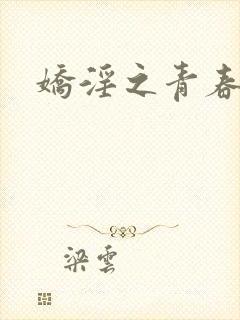 嬌淫之青春
梁雲